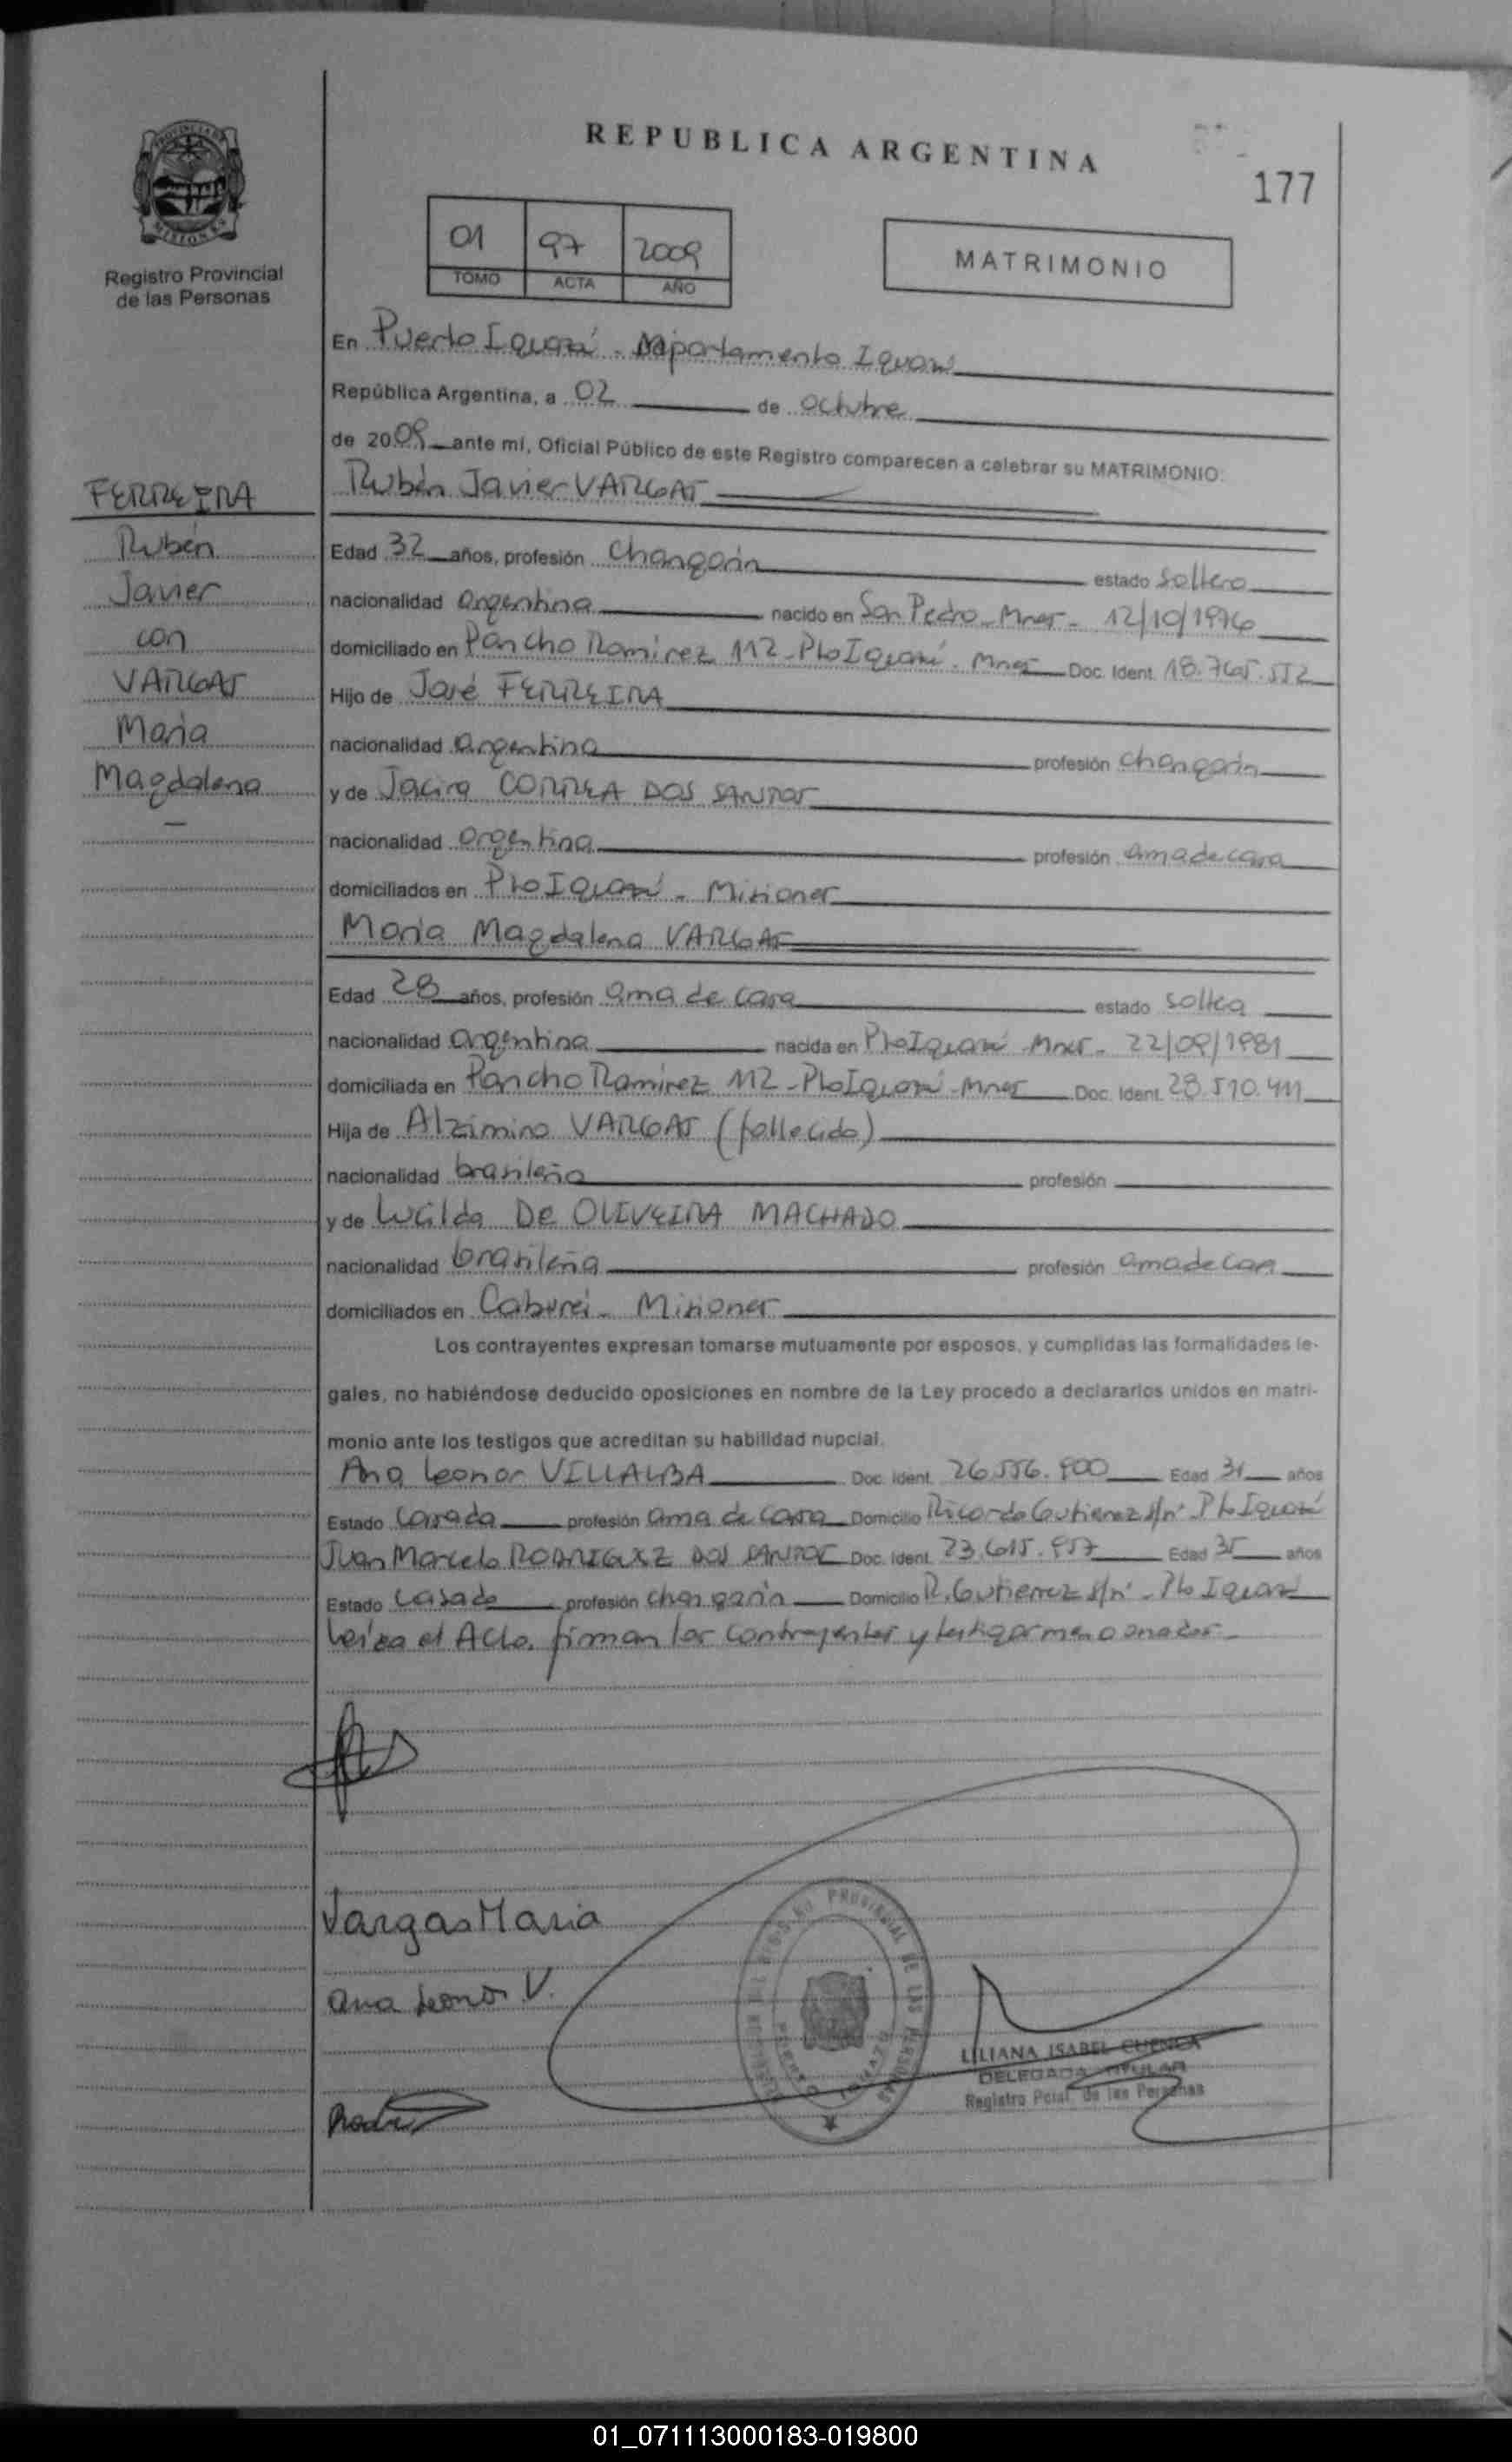 REPUBLICA ARGENTINA
177
01 97 2009
TOMO ACTA AÑO
MATRIMONIO
Registro Provincial
de las Personas
FERREIRA
Rubén
Javier
con
VARGAS
Maria
Magdalena
En Puerto Iguazú - Departamento Iguazú
República Argentina, a 02 de octubre
de 2009 ante mí, Oficial Público de este Registro comparecen a celebrar su MATRIMONIO:
Rubén Javier VARGAS
Edad 32 años, profesión Changarin estado soltero
nacionalidad argentina nacido en San Pedro - Mnes - 12/10/1976
domiciliado en Pancho Ramirez 112 - Pto Iguazú - Mnes Doc. Ident. 18.765.552
Hijo de José FERREIRA
nacionalidad argentina profesión changarin
y de Jacira CORREA DOS SANTOS
nacionalidad argentina profesión ama de casa
domiciliados en Pto Iguazú - Misiones
Maria Magdalena VARGAS
Edad 28 años, profesión ama de casa estado soltera
nacionalidad argentina nacida en Pto Iguazú - Mnes - 22/09/1981
domiciliada en Pancho Ramirez 112 - Pto Iguazú - Mnes Doc. Ident. 28.510.411
Hija de Alzimiro VARGAS (fallecido)
nacionalidad brasileña profesión
y de DE OLIVEIRA MACHADO
nacionalidad brasileña profesión ama de casa
domiciliados en Caburei - Misiones
Los contrayentes expresan tomarse mutuamente por esposos, y cumplidas las formalidades le-
gales, no habiéndose deducido oposiciones en nombre de la Ley procedo a declararlos unidos en matri-
monio ante los testigos que acreditan su habilidad nupcial.
Ana Leonor VILLALBA Doc. Ident. 26.556.900 Edad 31 años
Estado Casada profesión ama de casa Domicilio Ricardo Gutierrez s/nº - Pto Iguazú
Juan Marcelo RODRIGUEZ DOS SANTOS Doc. Ident. 23.615.957 Edad 35 años
Estado Casado profesión changarin Domicilio R. Gutierrez s/nº - Pto Iguazú
Leida el Acta, firman los contrayentes y testigos mencionados -
Vargas Maria
Ana Leonor V.
LILIANA ISABEL CUENCA
DELEGADA TITULAR
Registro Pcial. de las Personas
01_071113000183-019800